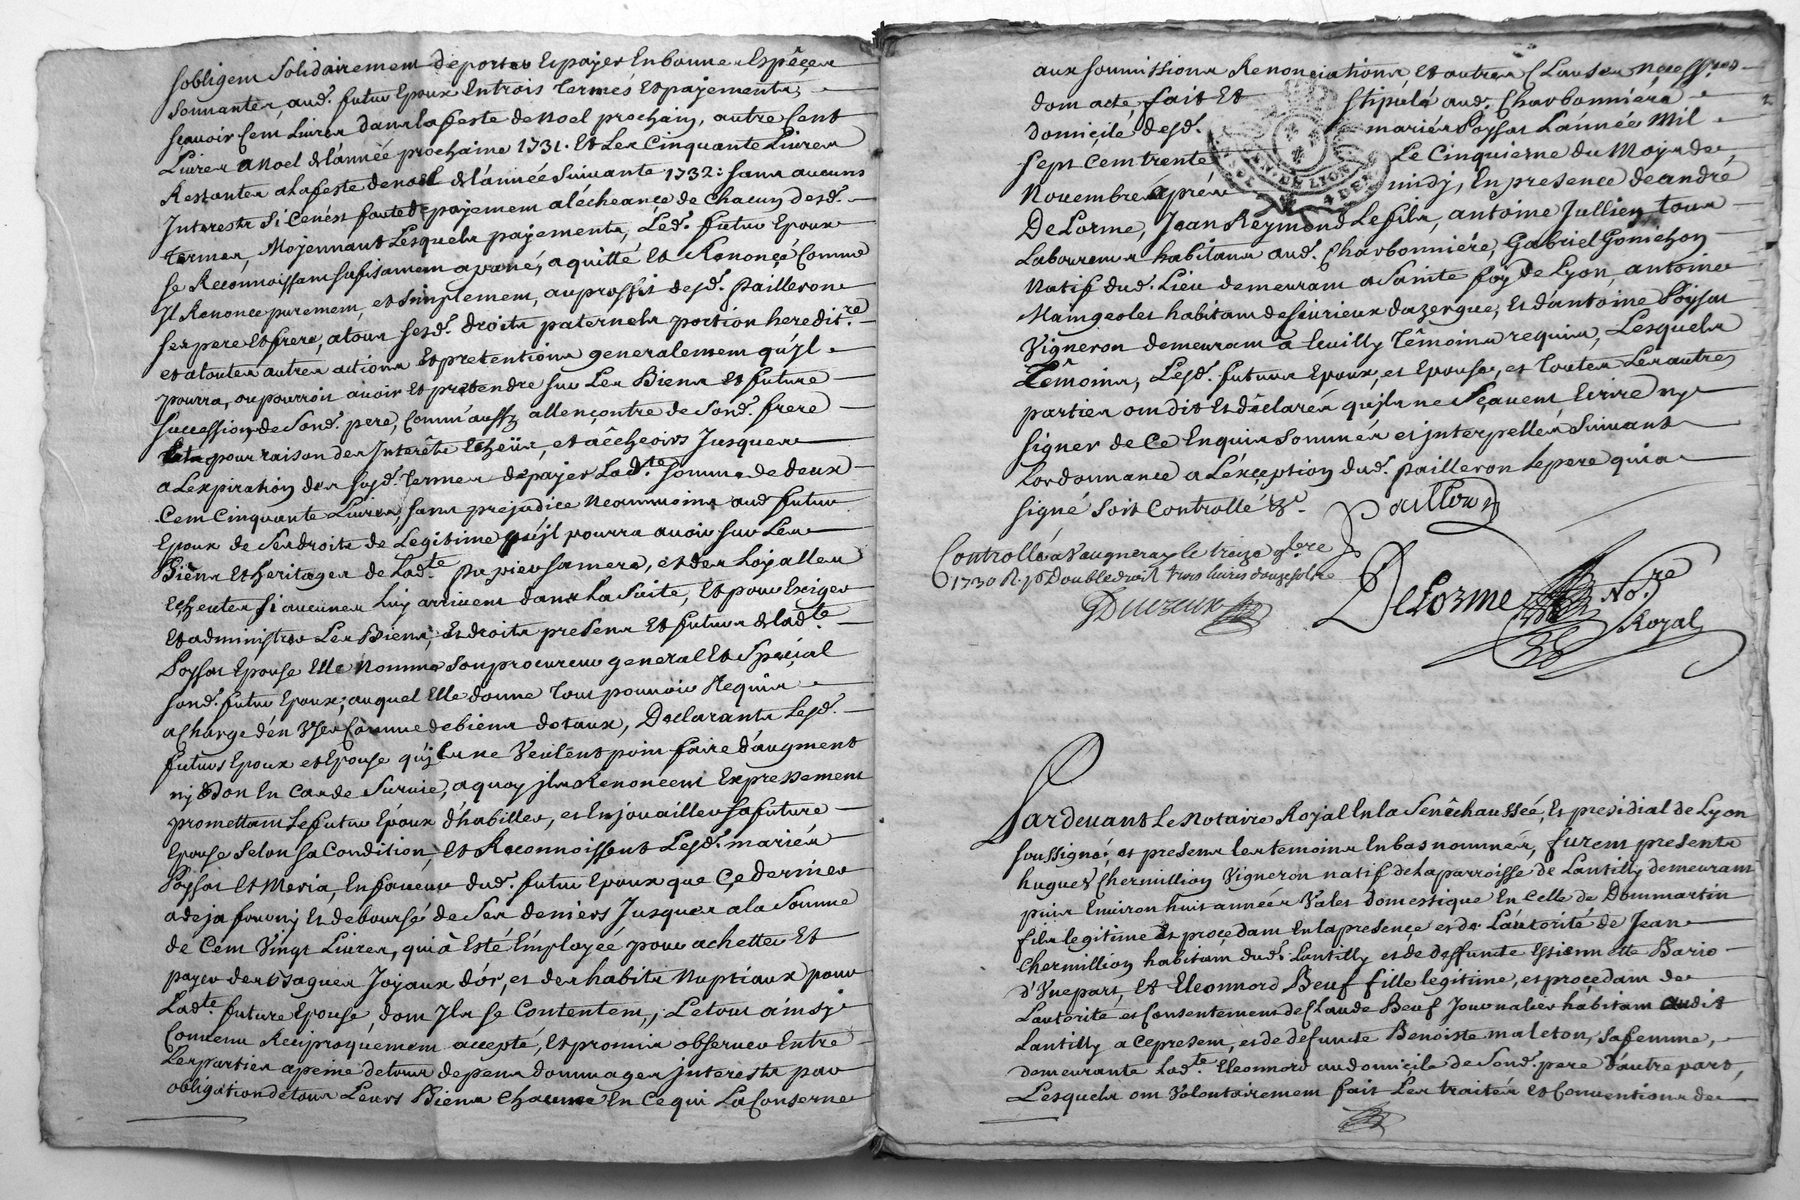 sobligent solidairement de porter et payer en bonnes espêces
sonnantes, aud. futur epoux en trois termes et payements,
sçavoir cent livres dans la feste de noel prochain, autre cent
livres a noel de l'année prochaine 1731. et les cinquante livres
restantes a la feste de noel de l'année suivante 1732: sans aucuns
interests si ce n'est faute de payement a lécheance de chacun desd.
termes, moyennant lesquels payements, led. futur epoux
se reconnoissant sufisament apané, a quitté et renoncé comme
il renonce purement, et simplement, au proffit desd. pailleron
ses pere et frere, a tous sesd. droits paternels portion heredit.re
et a toutes autres actions et pretentions generalement qu'yl
pourra, ou pourroit avoir et pretendre sur les biens et future
succession de sond. pere, comm'aussy allençontre de sond. frere
pour raison des interêts echeüs, et a êcheoirs jusques
a lexpiration des susd. termes de payer lad.te somme de deux
cent cinquante livres, sans prejudice neanmoins aud. futur
epoux de ses droits de legitime qu'yl pourra avoir sur les
biens et heritages de lad.te sa mere, et des loyalles
echeutes si aucunes luy arrivent dans la suite, et pour exiger
et administrer les biens, et droits presens et futurs de lad.te
poyssat epouse elle nomme son procureur general et speçial
sond. futur epoux, auquel elle donne tout pouvoir requis
a charge d'en user comme de biens dotaux, declarants lesd.
futurs epoux et epouse qu'yls ne veulent point faire d'augment
ny don en cas de survie, a quoy ils renoncent expressement
promettant le futur epoux d'habiller, et enjouailler sa future
epouse selon sa condition, et reconnoissent lesd. mariés
poyssat et meria, en faveur dud. futur epoux que çe dernier
a deja fourny et deboursé de ses deniers jusques a la somme
de cent vingt livres, qui â esté employéé pour achetter et
payer des bagues joyaux d'or, et des habits nuptiaux pour
lad.te future epouse, dont yls se contentent, letout ainsy
convenu reciproquement accepté, et promis observer entre
les parties a peine de tous depens dommages interests par
obligation de tous leurs biens chacune en ce qui la conserne
aux soumissions renonciations et autres clauses neçess.res
dont acte fait et stipulé aud. charbonniéres
domicile desd. mariés poyssat l'année mil
sept cent trente le cinquieme du mois de
novembre aprés midy, en presence de andré
delorme, jean reymond le fils, antoine jullien tous
laboureurs habitans aud. charbonniére, gabriel gonichon
natif dud. lieu demeurant a sainte foy de lyon, antoine
maingoles habitant de sivrieux dazergue, et dantoine poyssat
vigneron demeurant â leuilly têmoins requis, lesquels
têmoins, lesd. futurs epoux, et epouse, et toutes les autres
parties ont dit et dêclarés qu'yls ne sçavent ecrire ny
signer de ce enquis sommés et interpellés suivant
lordonnance a lexçeption dud. pailleron le pere qui a
signé soit controllé &c.
paillron
Controllé a Vaugneray le treize 9bre
1730 R. 16 Double droit trois livres douze sols
Delorme No.re
Royal
Pardevant le notaire royal en la senêchausséé, et presidial de lyon
soussigné, et presens les temoins en bas nommés, furent presents
hugues chermillion vigneron natif de la parroisse de lantilly demeurant
puis environ huit années valet domestique en celle de dommartin
fils legitime et procedant en la presence et de l'autorité de jean
chermillion habitant dud. lantilly et de deffunte estiennette bario
d'une part, et eleonnord beuf fille legitime, et procedant de
lautorité et consentement de claude beuf journalier habitant audit
lantilly a ce present, et de defunte benoiste maleton, sa femme,
demeurante lad.te eleonnord au domicile de sond. pere d'autre part,
lesquels ont volontairement fait les traités et conventions de